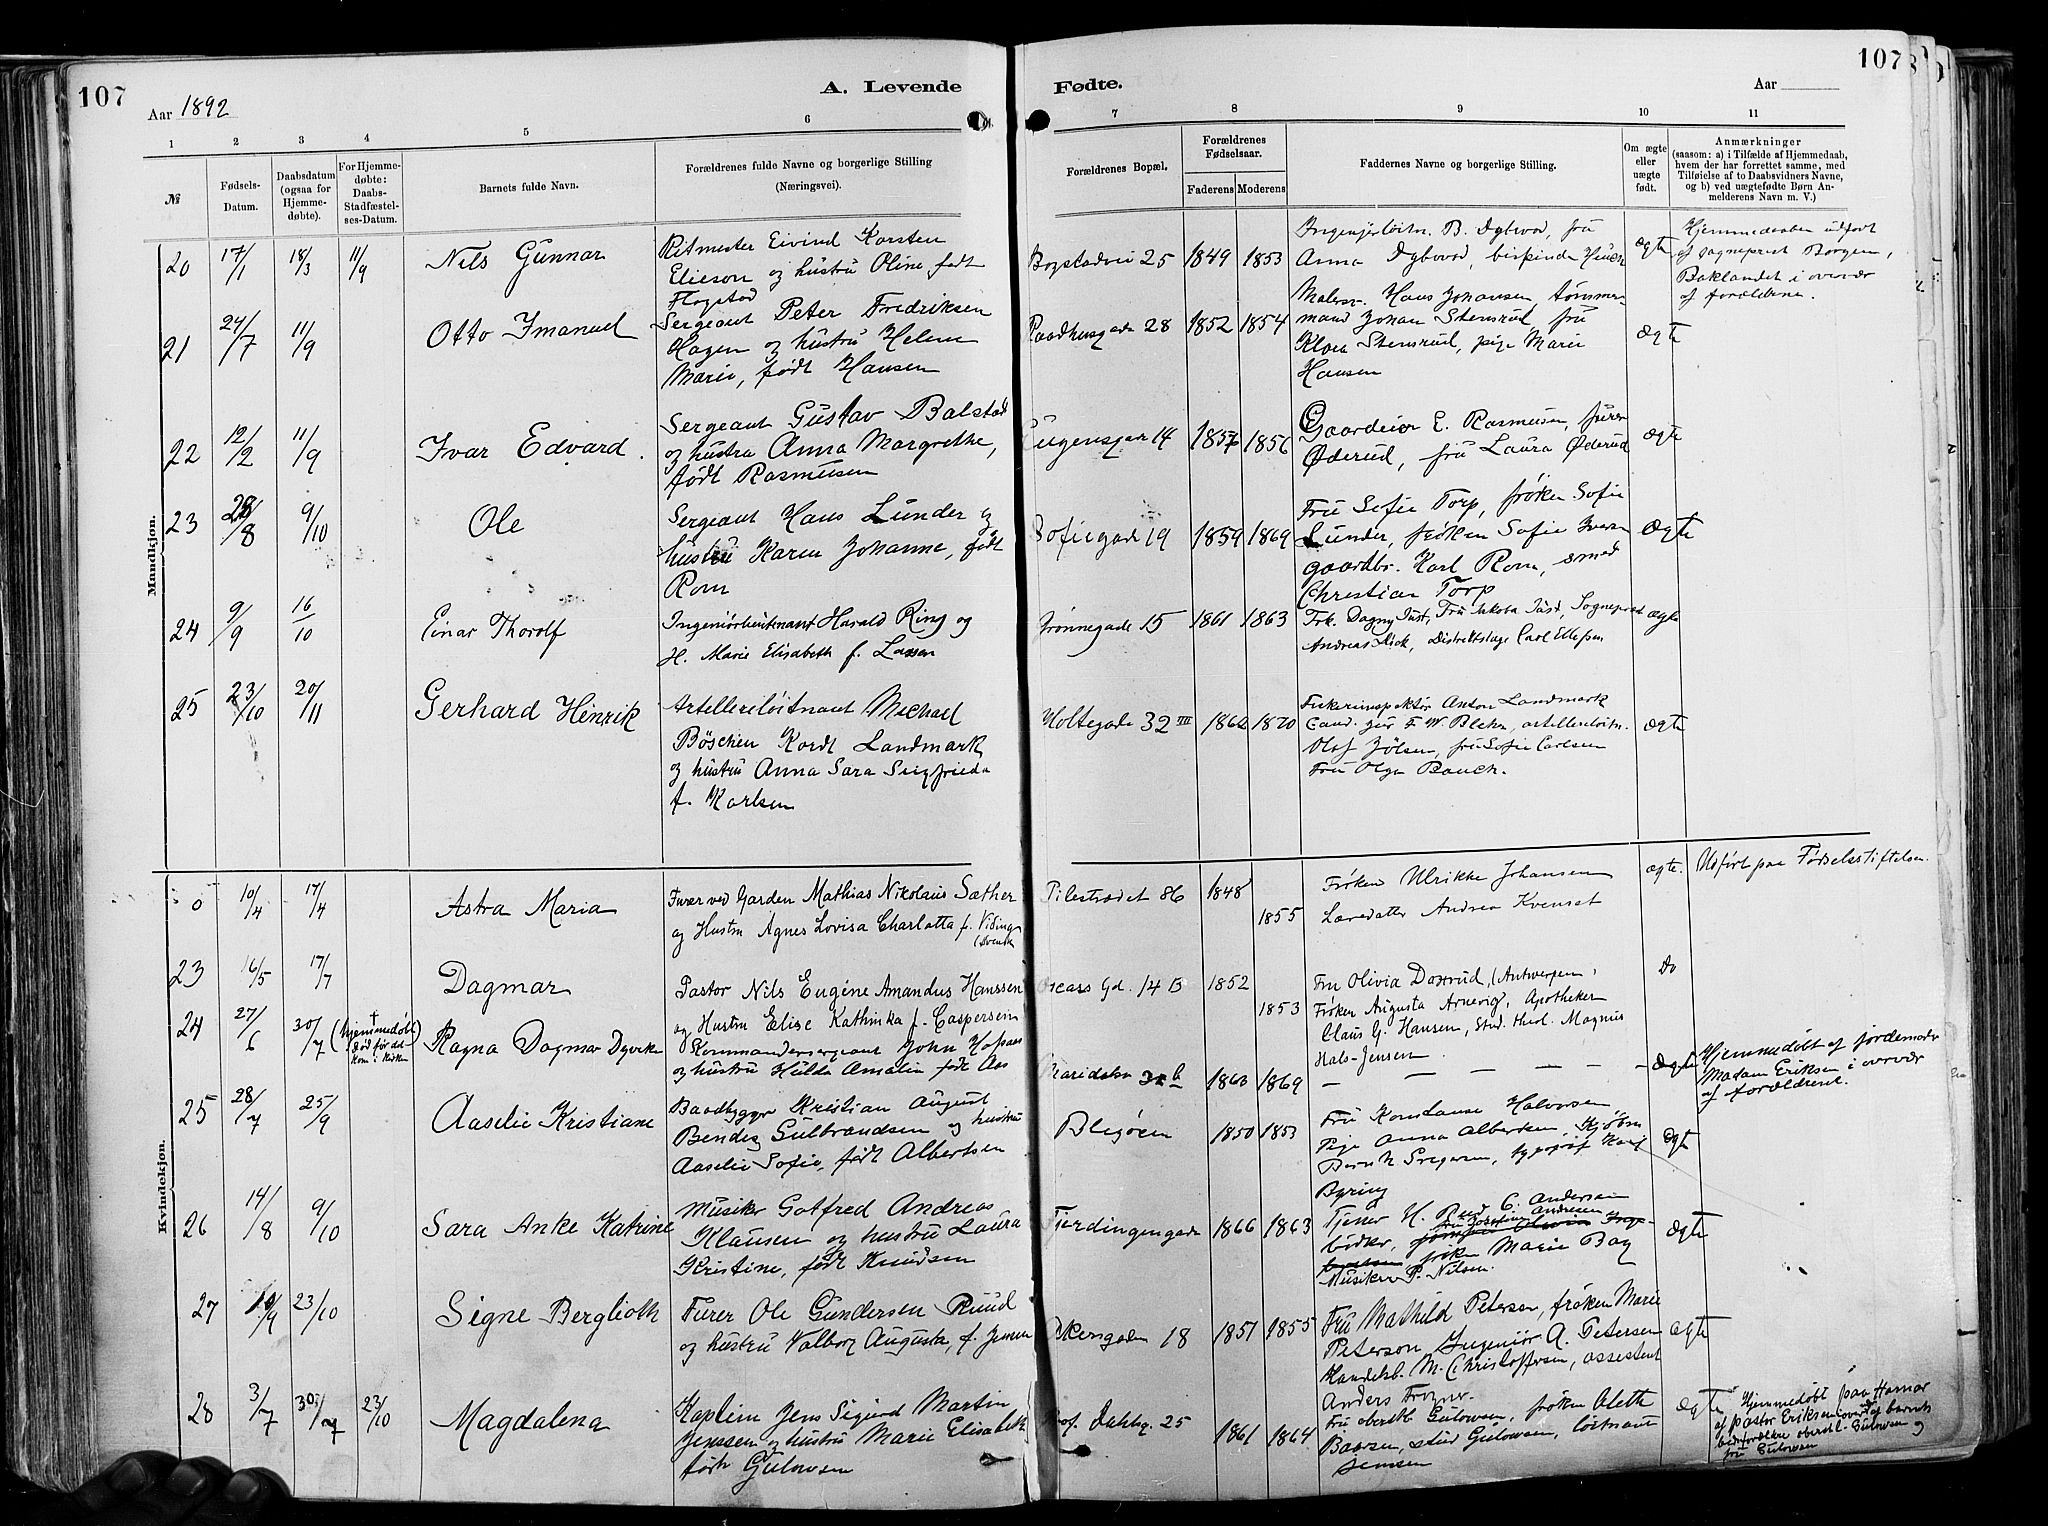 107
A. Levende
Fødte.
107
Aar 1892
Aar
1 2 3 4 5 6 7 8 9 10 11
№
Fødsels-
Datum.
Daabsdatum
(ogsaa for
Hjemme-
døbte).
For Hjemme-
døbte:
Daabs-
Stadfæstel-
ses-Datum.
Barnets fulde Navn.
Forældrenes fulde Navne og borgerlige Stilling
(Næringsvei).
Forældrenes Bopæl.
Forældrenes
Fødselsaar.
Faderens Moderens
Faddernes Navne og borgerlige Stilling.
Om ægte
eller
uægte
født.
Anmærkninger
(saasom: a) i Tilfælde af Hjemmedaab,
hvem der har forrettet samme, med
Tilføielse af to Daabsvidners Navne,
og b) ved uægtefødte Børn An-
melderens Navn m. V.)
Mandkjøn.
20 17/1 18/3 11/9 Nils Gunnar
Ritmester Eivind Karsten
Elieson og hustru Oline født
Flogstad
Bogstadvei 25 1849 1853
Anna Dybwad,
ægte
Hjemmedaaben udført
af sogneprest Borgen,
Baklandet i overvær
af forældrene.
21 24/7 11/9 Otto Imanuel
Sergeant Peter Fredriksen
Hagen og hustru Helene
Marie, født Hansen
Raadhusgade 28 1852 1854
Malersv. Hans Johansen, tømmer-
mand Johan Stensrud, fru
Klara Stensrud, pige Marie
Hansen
ægte
22 12/2 11/9 Ivar Edvard.
Sergeant Gustav Balstad
og hustru Anna Margrethe,
født Rasmusen
Eugensgade 14 1857 1856
Gaardeier E. Rasmusen, furer
Øderud, fru Laura Øderud
ægte
23 28/8 9/10 Ole
Sergeant Hans Lunder og
hustru Karen Johanne, født
Rom
Sofiegade 19 1859 1869
Fru Sofie Torp, frøken Sofie
Lunder, frøken Sofie Iversen
gaardbr. Karl Rom, smed
Christian Torp
ægte
24 9/9 16/10 Einar Thorolf
Ingeniørleutenant Harald Ring og
H. Marie Elisabeth f. Lassen
Grønnegade 15 1861 1863
Frk. Dagny Just, Fru Jakoba Just, Sogneprest
Andreas Kick, Distriktslæge Carl Ellefsen
ægte
25 23/10 20/11 Gerhard Henrik
Artilleriløitnant Michael
Böschen Kordt Landmark
og hustru Anna Sara Seigfrieda
f. Karlsen
Holtegade 32 III 1862 1870
Fiskeriinspektør Anton Landmark
Cand. jur F. W. artilleriløitn.
Olaf Jølsen, fru Sofie Carlsen
Fru Olga Bauck.
ægte
Kvindekjøn.
0 10/4 17/4 Astra Maria
Furer ved Garden Mathias Nikolaus Sæther
og Hustru Agnes Lovisa Charlotta f. Viding
(Svensk
Pilestrædet 86 1848
1855
Frøken Ulrikke Johansen
Læredatter Andrea Kvenset
ægte.
Udført paa Fødselsstiftelsen.
23 16/5 17/7 Dagmar
Pastor Nils Eugéne Amandus Hanssen
og Hustru Elise Kathinka f. Caspersen
Oscars Gd. 14 B 1852
1853
Fru Olivia Doxrud, (Antwerpen,
Frøken Augusta Arnevig, Apotheker
Claus G. Hansen, Stud. theol. Magnus
Hals-Jensen.
Do
24 27/6 30/7 (hjemmedøbt) †
død før det
kom i kirken
Ragna Dagmar Dyveke
Kommandersergeant John Hofaas
og hustru Hulda Amalia født Aas
Maridalsv 1863 1869
— — — — — —
ægte
Hjemmedøbt af jordemoder
Madam Eriksen i overvær
af forældrene.
25 28/7 25/9 Aaselie Kristiane
Baadbygger Kristian August
Bendix Gulbrandsen og hustru
Aaselie Sofie, født Albertsen
Blegøen 1850 1853
Fru Konstanse Halvorsen
Pige Anna Albertsen, Kjøbm
Byring
ægte
26 14/8 9/10 Sara Anke Katrine
Musiker Gotfred Andreas
Klausen og hustru Laura
Kristine, født Knudsen
Fjerdingengade 1866 1863
Tjener H. C. Andersen
bødker, frøken Marie Bay
Musiker P. Nilsen.
ægte
27 19/9 23/10 Signe Berglioth
Furer Ole Gundersen Ruud
og hustru Valborg Augusta, f. Jensen
Akersgaden 18 1851 1855
Fru Mathild Petersen, frøken Marie
Peterson, Ingeniør A. Petersen
Handelsb. M. Christoffersen, assistent
Anders Frogner.
ægte
28 3/7 30/7 23/10 Magdalena
Kaptein Jens Sigurd Martin
Jenssen og hustru Marie Elisabeth
født Gulowsen
Prof. Dahlsg. 25 1861 1864
Fru oberstl. Gulowsen, frøken Aleth
Baarsen, stud Gulowsen, løitnant
Jenssen
ægte
Hjemmedøbt paa Hamar
af pastor Eriksen i overvær af barnets
bedsteforældre oberstl. Gulowsen og
fru Gulowsen